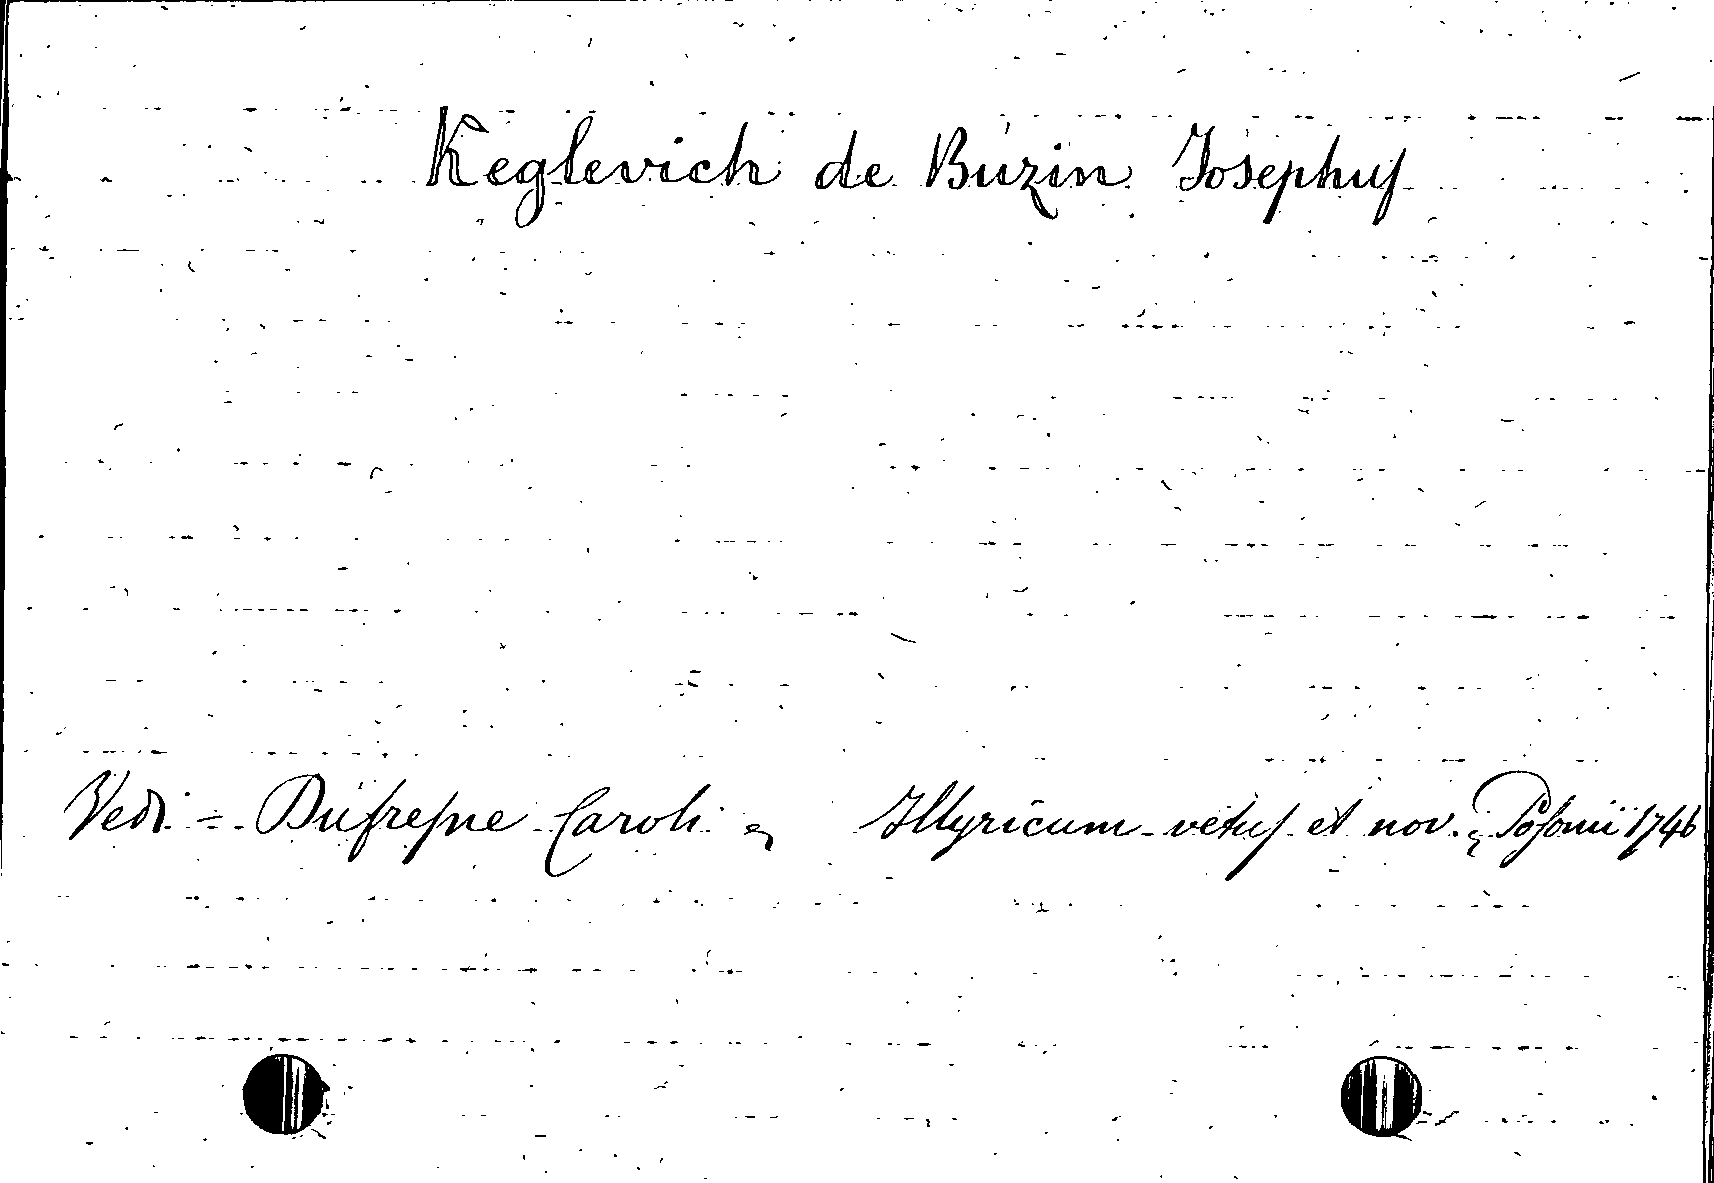 Keglevich de Buzin Josephus
Vedi = Dufresne Caroli = Illyricum vetus et nov. = Posonii 1746